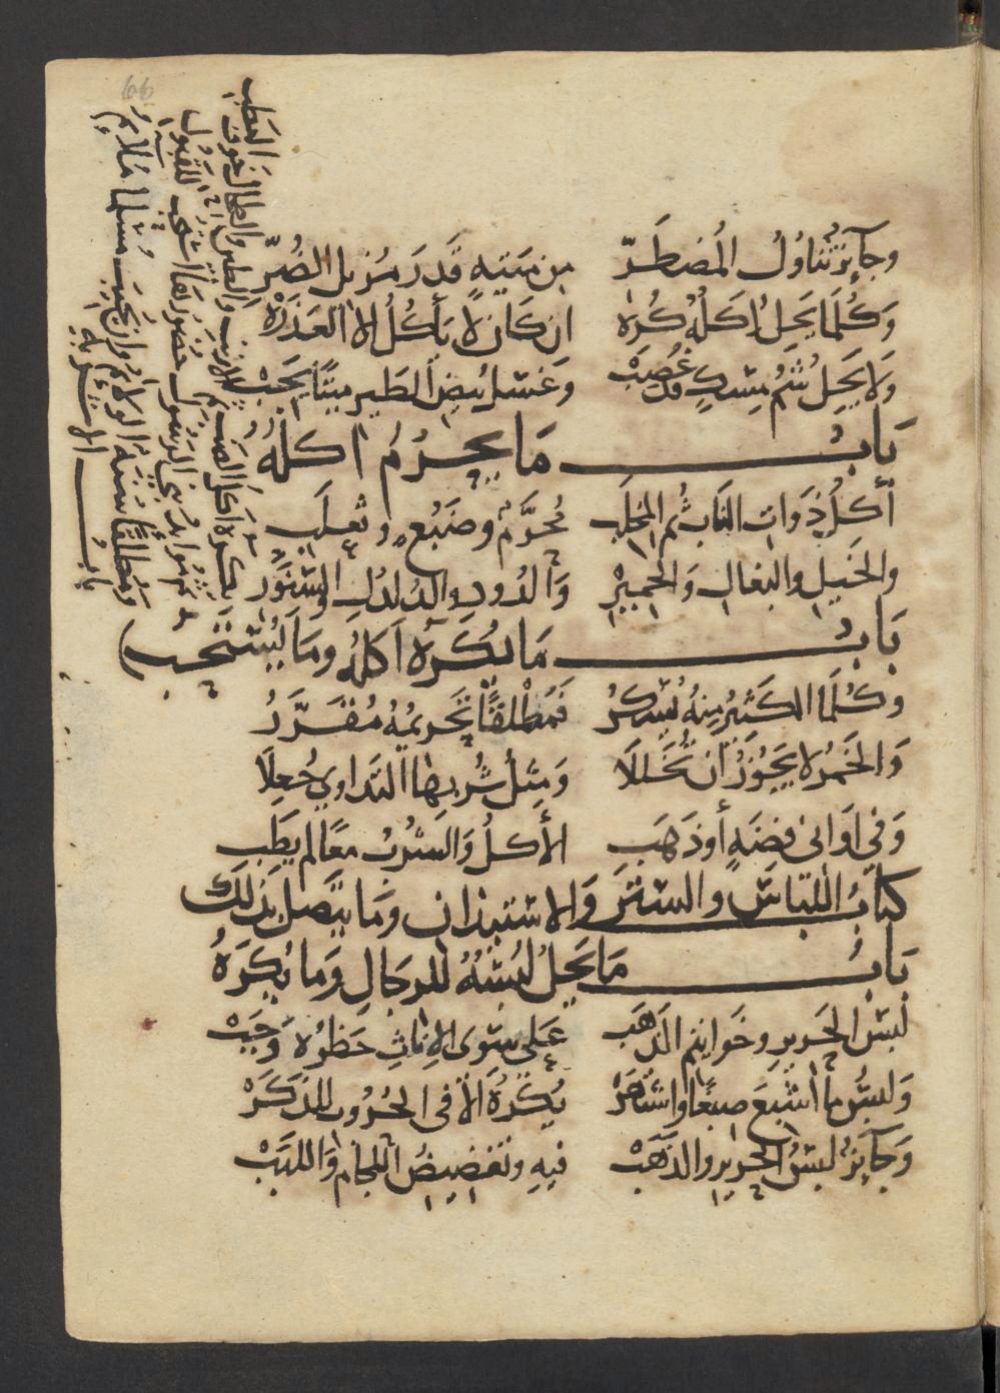 وجآئز تناول المضطرّ من ميتةٍ قدر مزيل الضرّ
وكلما يحل أكله كره ان كان لا يأكل الا العذره
ولا يحل شم مسك قد غصب وغسل بيض الطير ميتا يجب
باب ما يحرم اكله
أكل ذوات الناب ثم المخلب محرّم وضبع وثعلب
والخيل والبغال والحمير والدود والدلدل والسنور
باب ما يكره اكله وما يستحب
وكلما الكثير منه يسكر فمطلقًا تحريمه مقرّر
والخمر لا يجوز أن تخللا ومثل شربها التداوي جعلا
وفي اواني فضةٍ أو ذهب الأكل والشرب معًا لم يطب
كتاب اللباس والستر والاستيذان وما يتصل بذلك
باب ما يحل لبسه للرجال وما يكره
لبس الحرير وخواتيم الذهب على سوى الاناث حظره وجب
ولبس ما أشبع صبغًا واشتهر يكره الا في الحروب للذكر
وجآئز لبس الحرير والذهب فيه وتفضيض اللجام واللبب
يكره اكل الضب ثم الارنب والطين والطحال خوف العطب
ثم موايد بني الرسول حضورها استحب للقبول
ومطلقا سنية الولائم وان تجيب مسلما ملائم
باب الاشربة